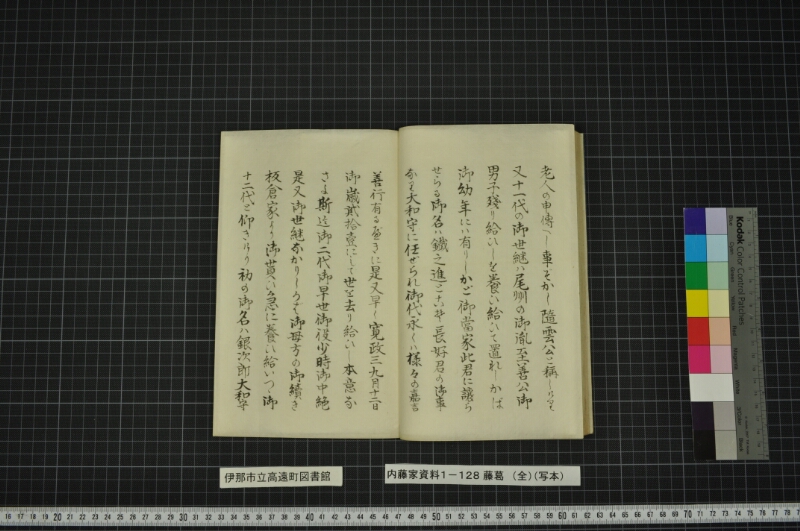 老人の申傳へし事ぞかし隨雲公と稱し
又十一代の御世継ハ尾州の御胤至善公御
男子残り給いしを養い給いて置れしかば
御幼年にハ有りしかご御當家此君に譲ら
せらる御名ハ鐵之進と 長好君の御事
なり大和守に任せられ御代永くハ様々の嘉言
善行有るべきに是又早く寛政三九月十二日
御歳貳拾壹にして世を去り給いし本意な
さよ斯迄御二代御早世御後少時御中絶
是又御世継なかりしかば御母方の御續き
板倉家より御貰い急に養い給いつゝ御
十二代と仰きけり初の御名ハ銀次郎大和守
伊那市立高遠町図書館
内藤家資料1－128 藤葛 （全）（写本）
Kodak Color Control Patches